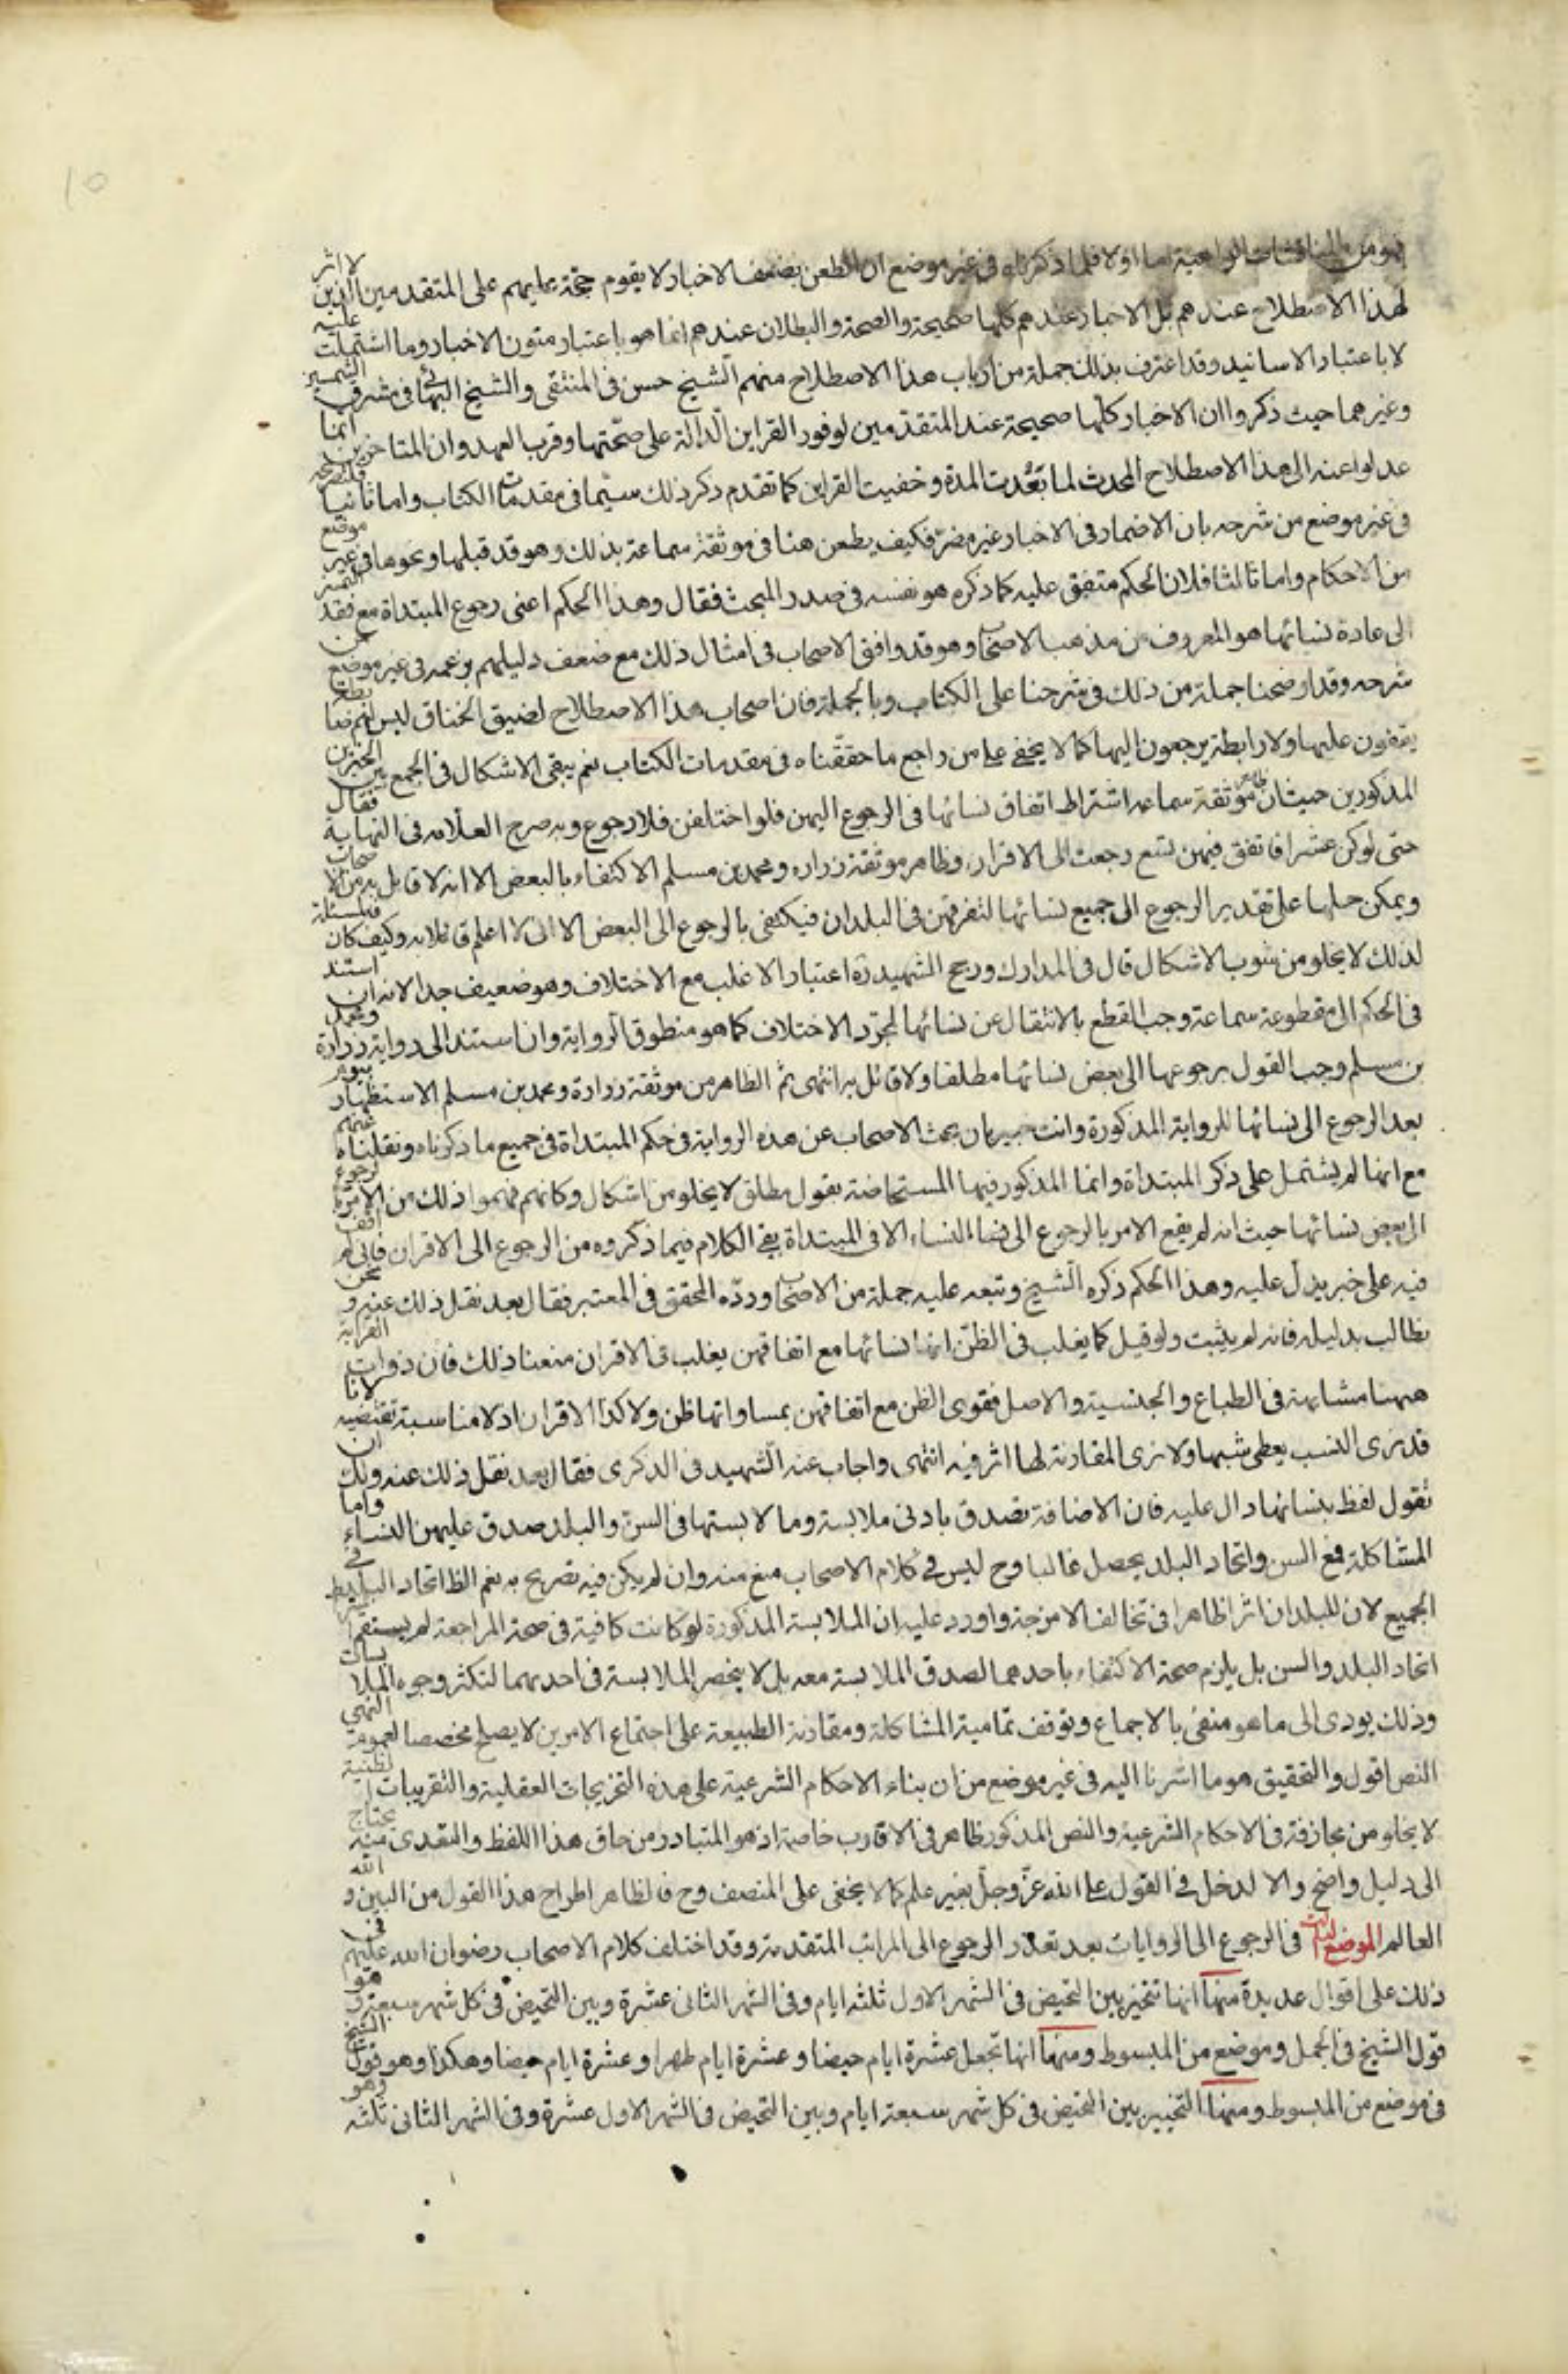 فهو من المناقشات الواهية اما اولا فلما ذكرناه في غير موضع ان الطعن بضعف الاخبار لا يقوم حجة عليهم على المتقدمين الذين لا اثر
لهذا الاصطلاح عندهم بل الاخبار عندهم كلها صحيحة والصحة والبطلان عندهم انما هو باعتبار متون الاخبار وما اشتملت عليه
لا باعتبار الاسانيد وقد اعترف بذلك جملة من ارباب هذا الاصطلاح منهم الشيخ حسن في المنتقى والشيخ البهائي في مشرق الشمسين
وغيرهما حيث ذكروا ان الاخبار كلها صحيحة عند المتقدمين لوفور القراين الدالة على صحتها وقرب العهد وان المتاخرين انما
عدلوا عنه الى هذا الاصطلاح المحدث لما بعُدت المدة وخفيت القراين كما تقدم ذكر ذلك سيّما في مقدمات الكتاب واما ثانيا فلتصريحه
في غير موضع من شرحه بان الاضمار في الاخبار غير مضرّ فكيف يطعن هنا في موثقة سماعة بذلك وهو قد قبلها ونحوها في غير موضع
من الاحكام واما ثالثا فلان الحكم متفق عليه كما ذكره هو نفسه في صدر المبحث فقال وهذا الحكم اعنى رجوع المبتداة مع فقد التميز
الى عادة نسائها هو المعروف من مذهب الاصحاب وهو قد وافق الاصحاب في امثال ذلك مع ضعف دليلهم بزعمه في غير موضع من
شرحه وقد اوضحنا جملة من ذلك في شرحنا على الكتاب وبالجملة فان اصحاب هذا الاصطلاح لضيق الخناق ليس لهم ضابطة
يقفون عليها ولا رابطة يرجعون اليها كما لا يخفى على من راجع ما حققناه في مقدمات الكتاب نعم يبقى الاشكال في الجمع بين الخبرين
المذكورين حيث ان ظاهر موثقة سماعه اشتراط اتفاق نسائها في الرجوع اليهن فلو اختلفن فلا رجوع وبه صرح العلّامه في النهاية فقال
حتى لو كن عشرا فاتفق فيهن تسع رجعت الى الاقران وظاهر موثقة زراره ومحمد بن مسلم الاكتفاء بالبعض الا انه لا قايل به من الاصحاب
ويمكن حملها على تقدير الرجوع الى جميع نسائها لتفرقهن في البلدان فيكتفى بالرجوع الى البعض الا انى لا اعلم قائلا به وكيف كان فالمسئلة
لذلك لا يخلو من شوب الاشكال قال في المدارك ورجح الشهيد ره اعتبار الاغلب مع الاختلاف وهو ضعيف جدا لانه ان استند
في الحكم الى مقطوعة سماعة وجب القطع بالانتقال عن نسائها لمجرّد الاختلاف كما هو منطوق الرواية وان استند الى رواية زرارة ومحمد
بن مسلم وجب القول برجوعها الى بعض نسائها مطلقا ولا قائل به انتهى ثم الظاهر من موثقة زرارة ومحمد بن مسلم الاستظهار بيوم
بعد الرجوع الى نسائها للرواية المذكورة وانت خبير بان بحث الاصحاب عن هذه الرواية في حكم المبتداة في جميع ما ذكرناه ونقلناه عنهم
مع انها لم يشتمل على ذكر المبتداة وانما المذكور فيها المستحاضة بقول مطلق لا يخلو من اشكال وكانهم فهموا ذلك من الامر بالرجوع
الى بعض نسائها حيث انه لم يقع الامر بالرجوع الى النساء الا في المبتداة بقى الكلام فيما ذكروه من الرجوع الى الاقران فانى لم اقف
فيه على خبر يدل عليه وهذا الحكم ذكره الشيخ وتبعه عليه جملة من الاصحاب وردّه المحقق في المعتبر فقال بعد نقل ذلك عنه ونحن
نطالب بدليله فانه لم يثبت ولو قيل كما يغلب في الظن انها نسائها مع اتفاقهن يغلب في الاقران منعنا ذلك فان ذوات القرابة
ههنا مشابهة في الطباع والجنسية والاصل فقوى الظن مع اتفاقهن بمساواتها ظن ولا كذا الاقران اذ لا مناسبة تقتضيه لانا
قد نرى النسب يعطى شبها ولا نرى المقارنة لها اثر فيه انتهى واجاب عنه الشهيد في الذكرى فقال بعد نقل ذلك عنه ولك ان
تقول لفظ نسائها دال عليه فان الاضافة تصدق بادنى ملابسة وما لابستها في السن والبلد صدق عليهن النساء واما
المشاكلة فمع السن واتحاد البلد يحصل غالبا وح ليس في كلام الاصحاب منع منه وان لم يكن فيه تصريح به نعم الظ اتحاد البلد في
الجميع لان للبلدان اثرا ظاهرا في تخالف الامزجة واورد عليه ان الملابسة المذكورة لو كانت كافية في صحة المراجعة لم يستقم اشتراط
اتحاد البلد والسن بل يلزم صحة الاكتفاء باحدهما لصدق الملابسة معه بل لا ينحصر الملابسة في احديهما لتكثر وجوه الملابسات
وذلك يودى الى ما هو منفى بالاجماع وتوقف تمامية المشاكلة ومقارنة الطبيعة على اجتماع الامرين لا يصلح مخصصا لعموم انتهى
النص اقول والتحقيق هو ما اشرنا اليه في غير موضع من ان بناء الاحكام الشرعية على هذه التخريجات العقلية والتقريبات الظنية
لا يخلو من مجازفة في الاحكام الشرعية والنص المذكور ظاهر في الاقارب خاصة اذ هو المتبادر من حاق هذا اللفظ والتعدى منه يحتاج
الى دليل واضح والا لدخل في القول على الله عزّ وجلّ بغير علم كما لا يخفى على المنصف وح فالظاهر اطراح هذا القول من البين والله
العالم الموضع الثالث في الرجوع الى الروايات بعد تعذر الرجوع الى المراتب المتقدمة وقد اختلف كلام الاصحاب رضوان الله عليهم في
ذلك على اقوال عديدة منها انها تتخير بين التحيض في الشهر الاول ثلثه ايام وفي الشهر الثانى عشرة وبين التحيض في كل شهر سبعة وهو
قول الشيخ في الجمل وموضع من المبسوط ومنها انها تجعل عشرة ايام حيضا وعشرة ايام طهرا وعشرة ايام حيضا وهكذا وهو قول الشيخ
في موضع من المبسوط ومنها التخيير بين التحيض في كل شهر سبعة ايام وبين التحيض في الشهر الاول عشرة وفي الشهر الثانى ثلثه وهو